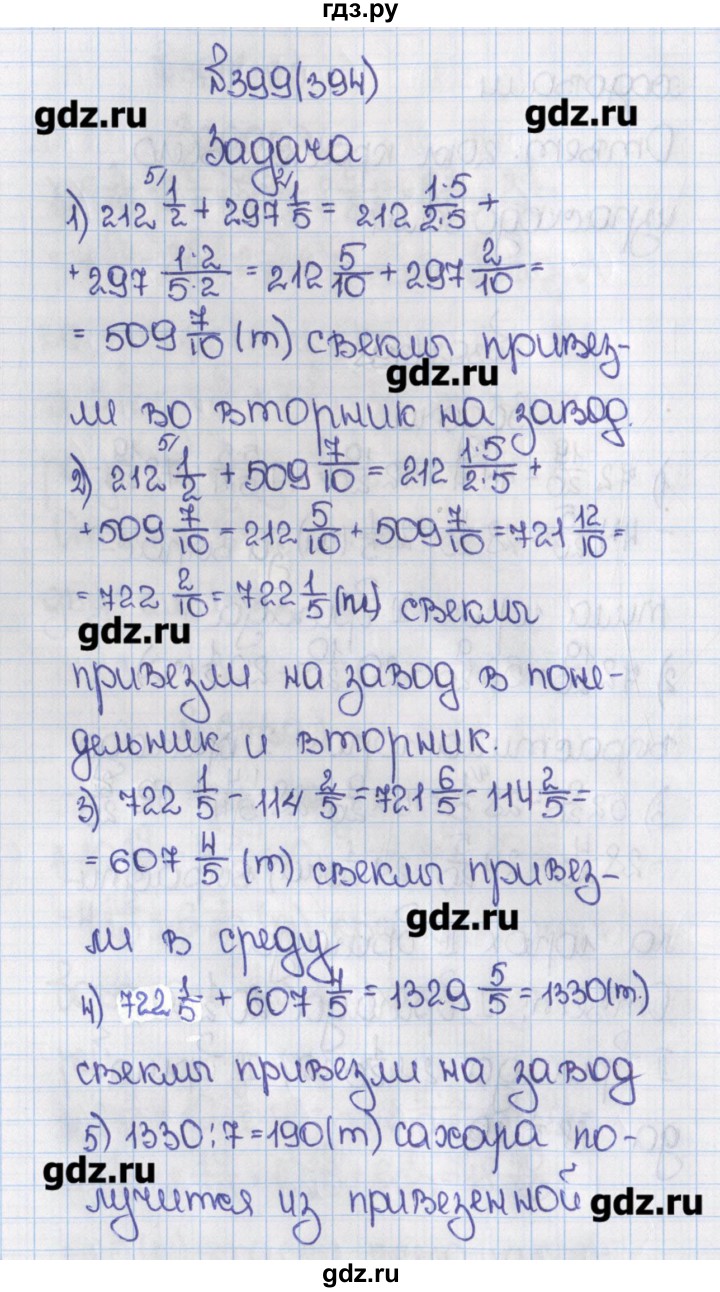 гдз.ру
№399(394)
gdz.ru
gdz.ru
Задача
1) 212 5/ 1/2 + 297 2/ 1/5 = 212 1·5/2·5 +
+ 297 1·2/5·2 = 212 5/10 + 297 2/10 =
= 509 7/10 (т) свеклы привез-
gdz.ru
ли во вторник на завод.
2) 212 5/ 1/2 + 509 7/10 = 212 1·5/2·5 +
+ 509 7/10 = 212 5/10 + 509 7/10 = 721 12/10 =
= 722 2/10 = 722 1/5 (т) свеклы
gdz.ru
привезли на завод в поне-
дельник и вторник.
3) 722 1/5 - 114 2/5 = 721 6/5 - 114 2/5 =
= 607 4/5 (т) свеклы привез-
gdz.ru
ли в среду
4) 722 1/5 + 607 4/5 = 1329 5/5 = 1330 (т.)
свеклы привезли на завод
5) 1330:7=190(т) сахара по-
gdz.ru
лучится из привезенной
gdz.ru
gdz.ru